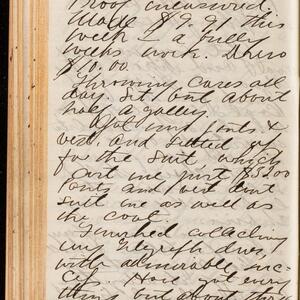 Proof measured.
Made $9.91 this
week — a full
week's work. Drew
$10.00
Throwing cases all
day. Set but about
half a galley.
Got my pants &
vest. And settled up
for the suit, which
cost me just $35.00
Pants and vest don't
suit me as well as
the coat.
Finished collecting
my telegraph dues,
with admirable suc-
cess. Have got every
thing but about